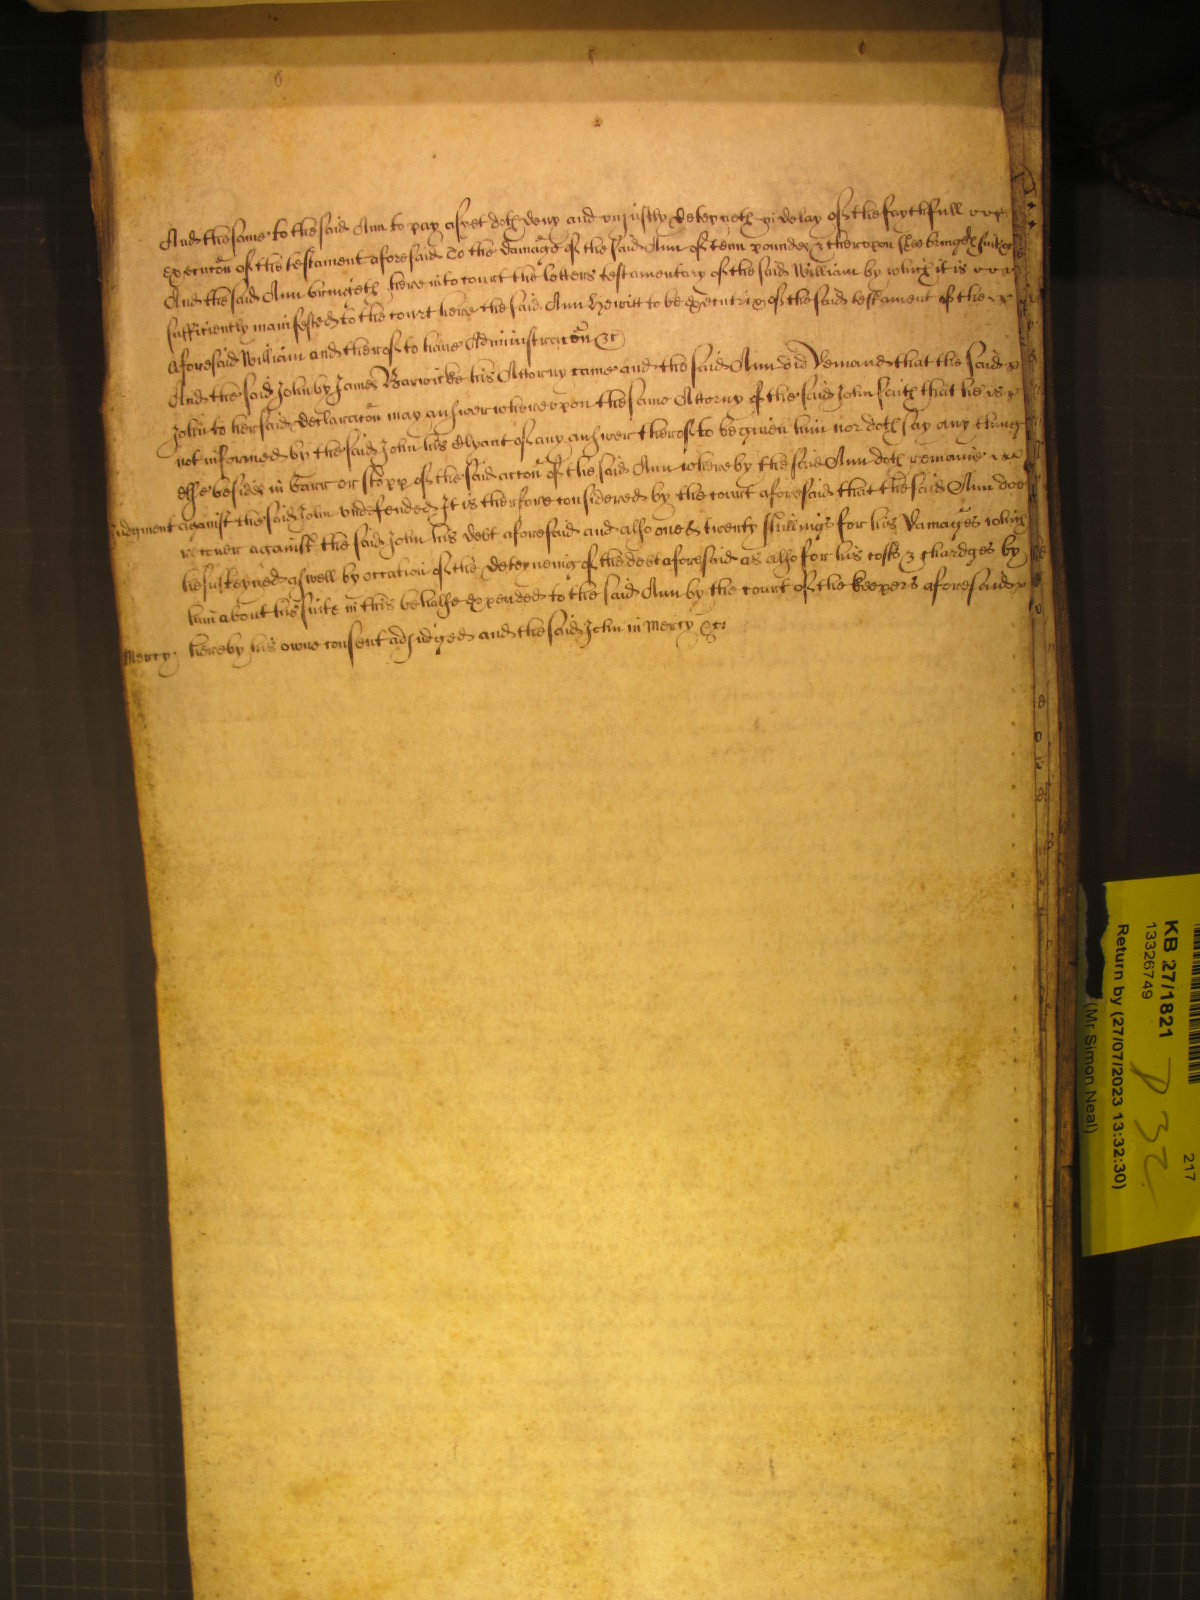 And the same to the said Ann to pay as yet doth deny and uniustly deteyneth in delay of the faythfull
execucon of the testament aforesaid To the damage of the said Ann of tenn poundes & thereupon shee bringeth suite &c
And the said Ann bringeth here into court the letters testamentary of the said William by which it is
sufficiently manifested to the court heere the said Ann Hewitt to be executrix of the said testament of the
aforesaid William and therof to have Administracon &c
And the said John by James Barwicke his Attorny came and the said Ann did demand that the said
John to her said declaracon may answer whereupon the same Attorny of the said John saith that he is
not informed by the said John his Clyant of any answer therof to be given him nor doth say any thing
else besides in barr or stopp of the said accon of the said Ann whereby the said Ann doth remaine
Judgment against the said John undefended It is therfore considered by the court aforesaid that the said Ann doe
recover against the said John his debt aforesaid and also one & twenty shillings for his damages which
he susteyned aswell by occation of the deteyneing of the debt aforesaid as also for his costs & chardges by
him about his suite in this behalfe expended to the said Ann by the court of the keepers aforesaid
Mercy: hereby his owne consent adjudged and the said John in Mercy &c:
KB 27/1821
13326749
Return by (27/07/2023 13:32:30)
(Mr Simon Neal)
217